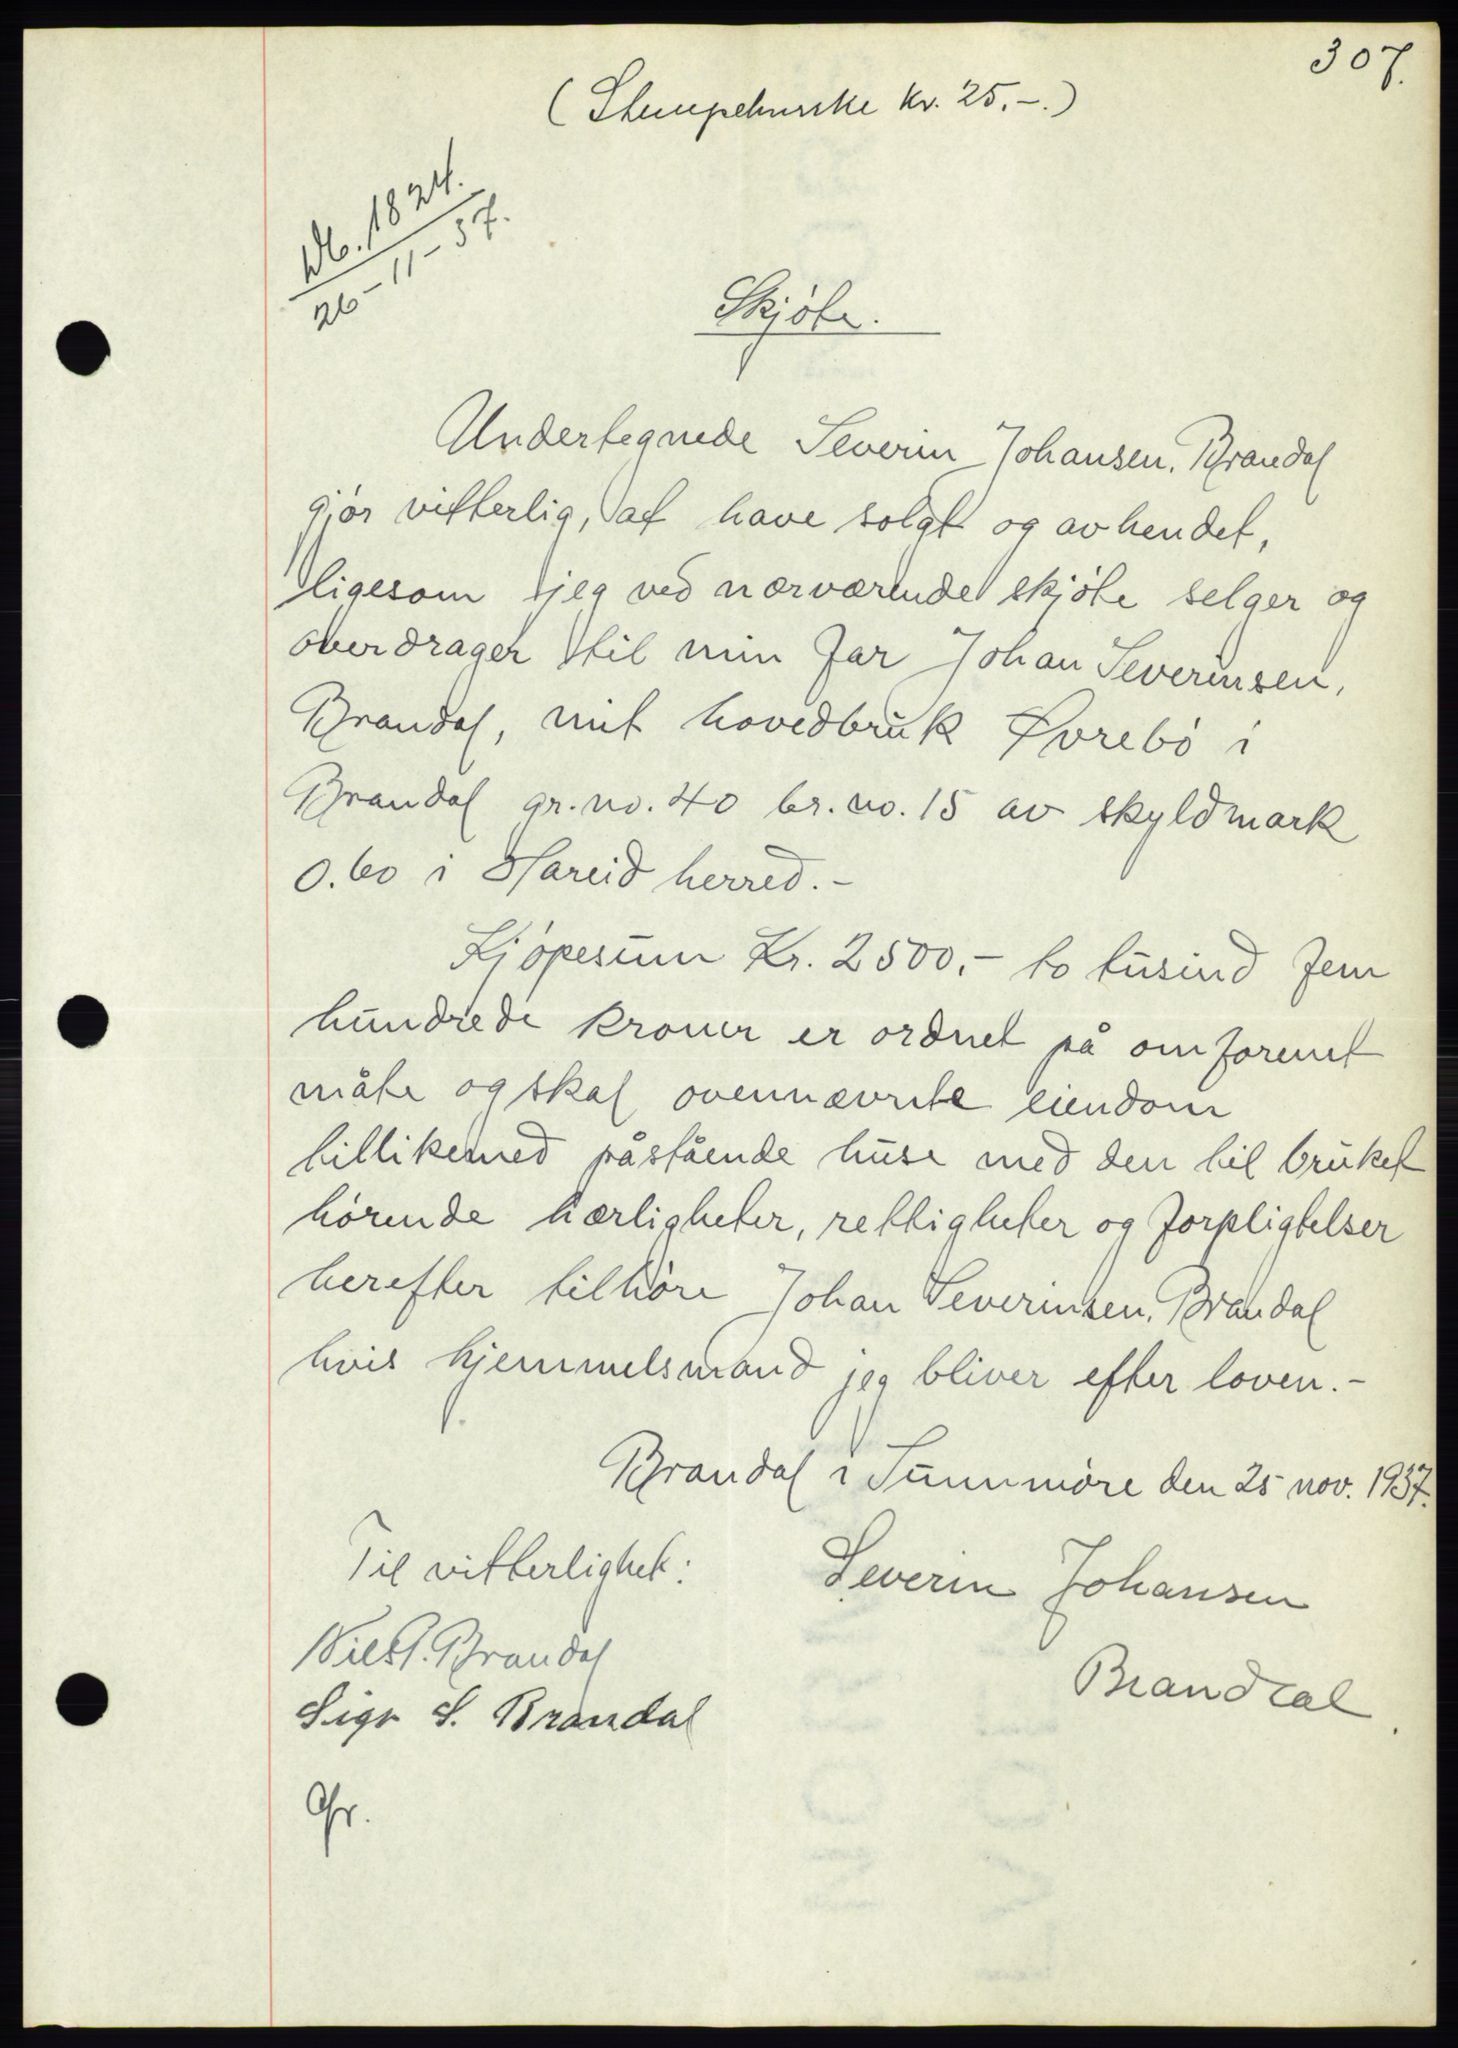 307.
(Stempelmerke kr. 25.-.)
Nb. 1824.
26-11-37.
Skjöte.
Undertegnede Severin Johansen, Brandal
gjör vitterlig, at have solgt og avhendet,
ligesom jeg ved nærværende skjöte selger og
overdrager til min far Johan Severinsen,
Brandal, mit hovedbruk Övrebö i
Brandal gr.no. 40 br.no. 15 av skyldmark
0.60 i Hareid herred.-
Kjöpesum Kr. 2500,- to tusind fem
hundrede kroner er ordnet på omforenet
måte og skal ovennævnte eiendom
tillikemed påstående huse med den til bruket
hörende herligheter, rettigheter og forpligtelser
herefter tilhöre Johan Severinsen, Brandal
hvis hjemmelsmand jeg bliver efter loven.-
Brandal i Sunnmöre den 25 nov. 1937.
Til vitterlighet:
Severin Johansen
Brandal
Brandal
Sigv S. Brandal